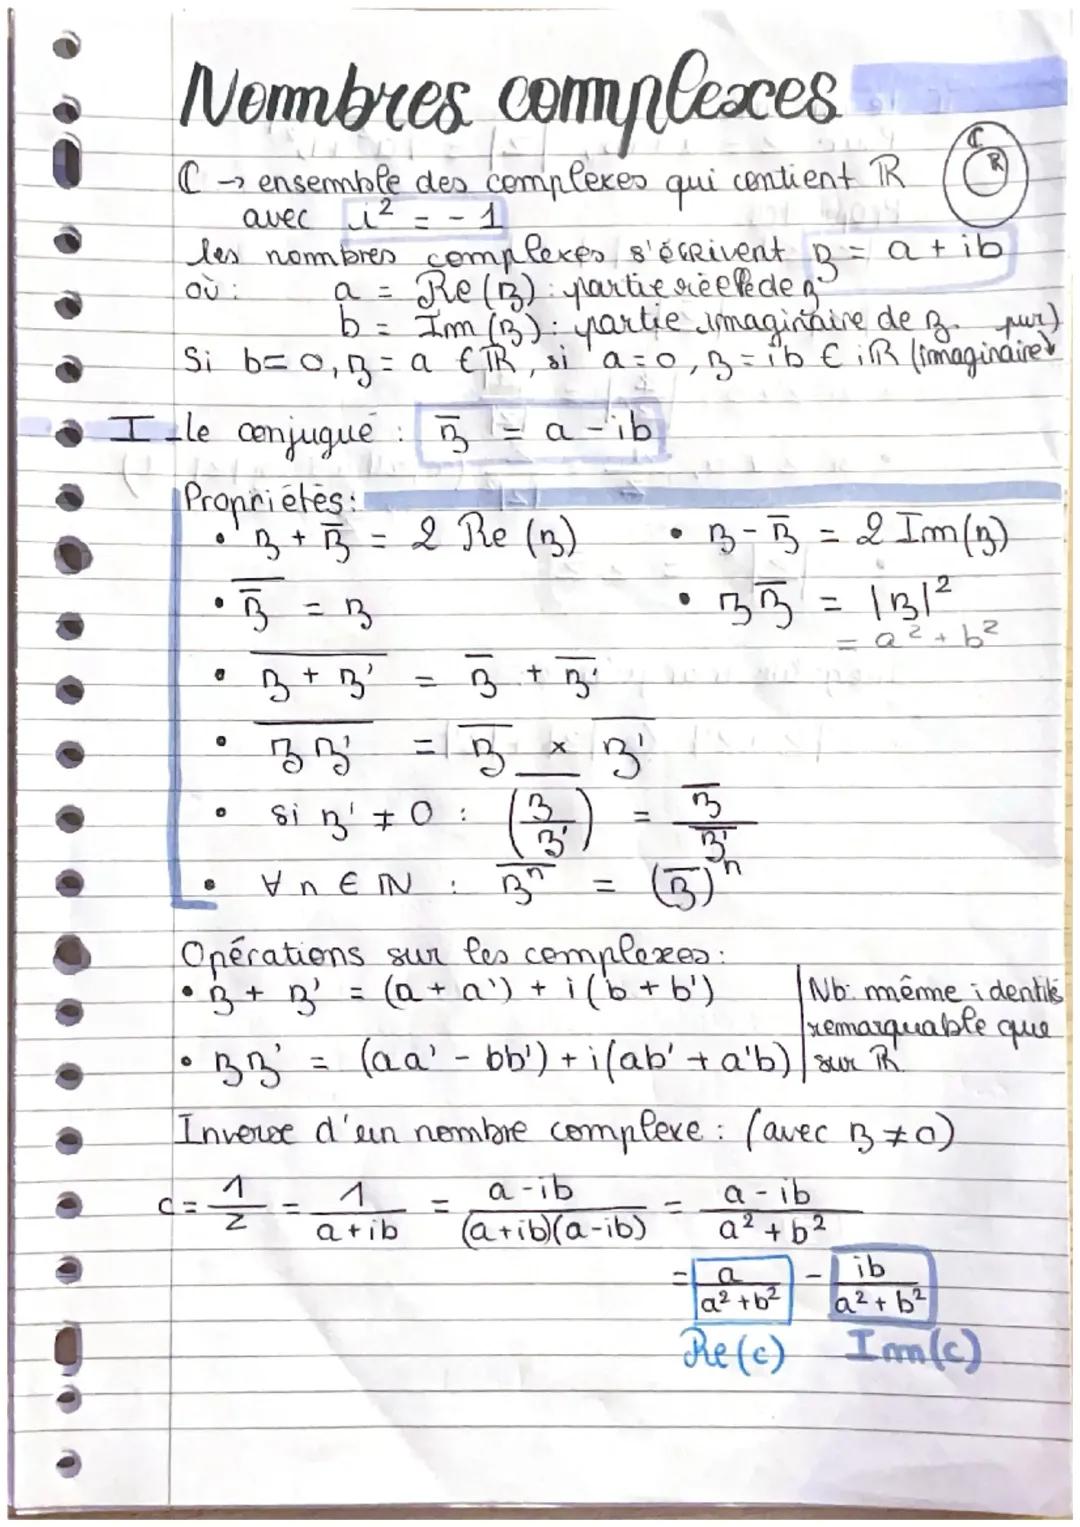 Nombres complexes
ℂ → ensemble des complexes qui contient ℝ
ℂ
ℝ
avec i² = - 1
les nombres complexes s'écrivent z = a + ib
où : a = Re(z) : partie réelle de z
b = Im(z) : partie imaginaire de z.
Si b=0, z = a ∈ ℝ, si a=0, z = ib ∈ iℝ (imaginaire pur)
I - le conjugué : z̅ = a - ib
Propriétés :
• z + z̅ = 2 Re (z) • z - z̅ = 2 Im(z)
• z̿ = z • z z̅ = |z|²
= a² + b²
• \overline{z + z'} = z̅ + \overline{z'}
• \overline{z z'} = z̅ × \overline{z'}
• si z' ≠ 0 : \overline{(z/z')} = z̅ / \overline{z'}
• ∀ n ∈ ℕ : \overline{zⁿ} = (z̅)ⁿ
Opérations sur les complexes :
• z + z' = (a + a') + i(b + b')
• zz' = (aa' - bb') + i(ab' + a'b)
Nb: même identité
remarquable que
sur ℝ
Inverse d'un nombre complexe : (avec z ≠ 0)
c = 1/z = 1/(a + ib) = (a - ib)/((a+ib)(a-ib)) = (a - ib)/(a² + b²)
= a/(a² + b²) - ib/(a² + b²)
Re(c) Im(c)